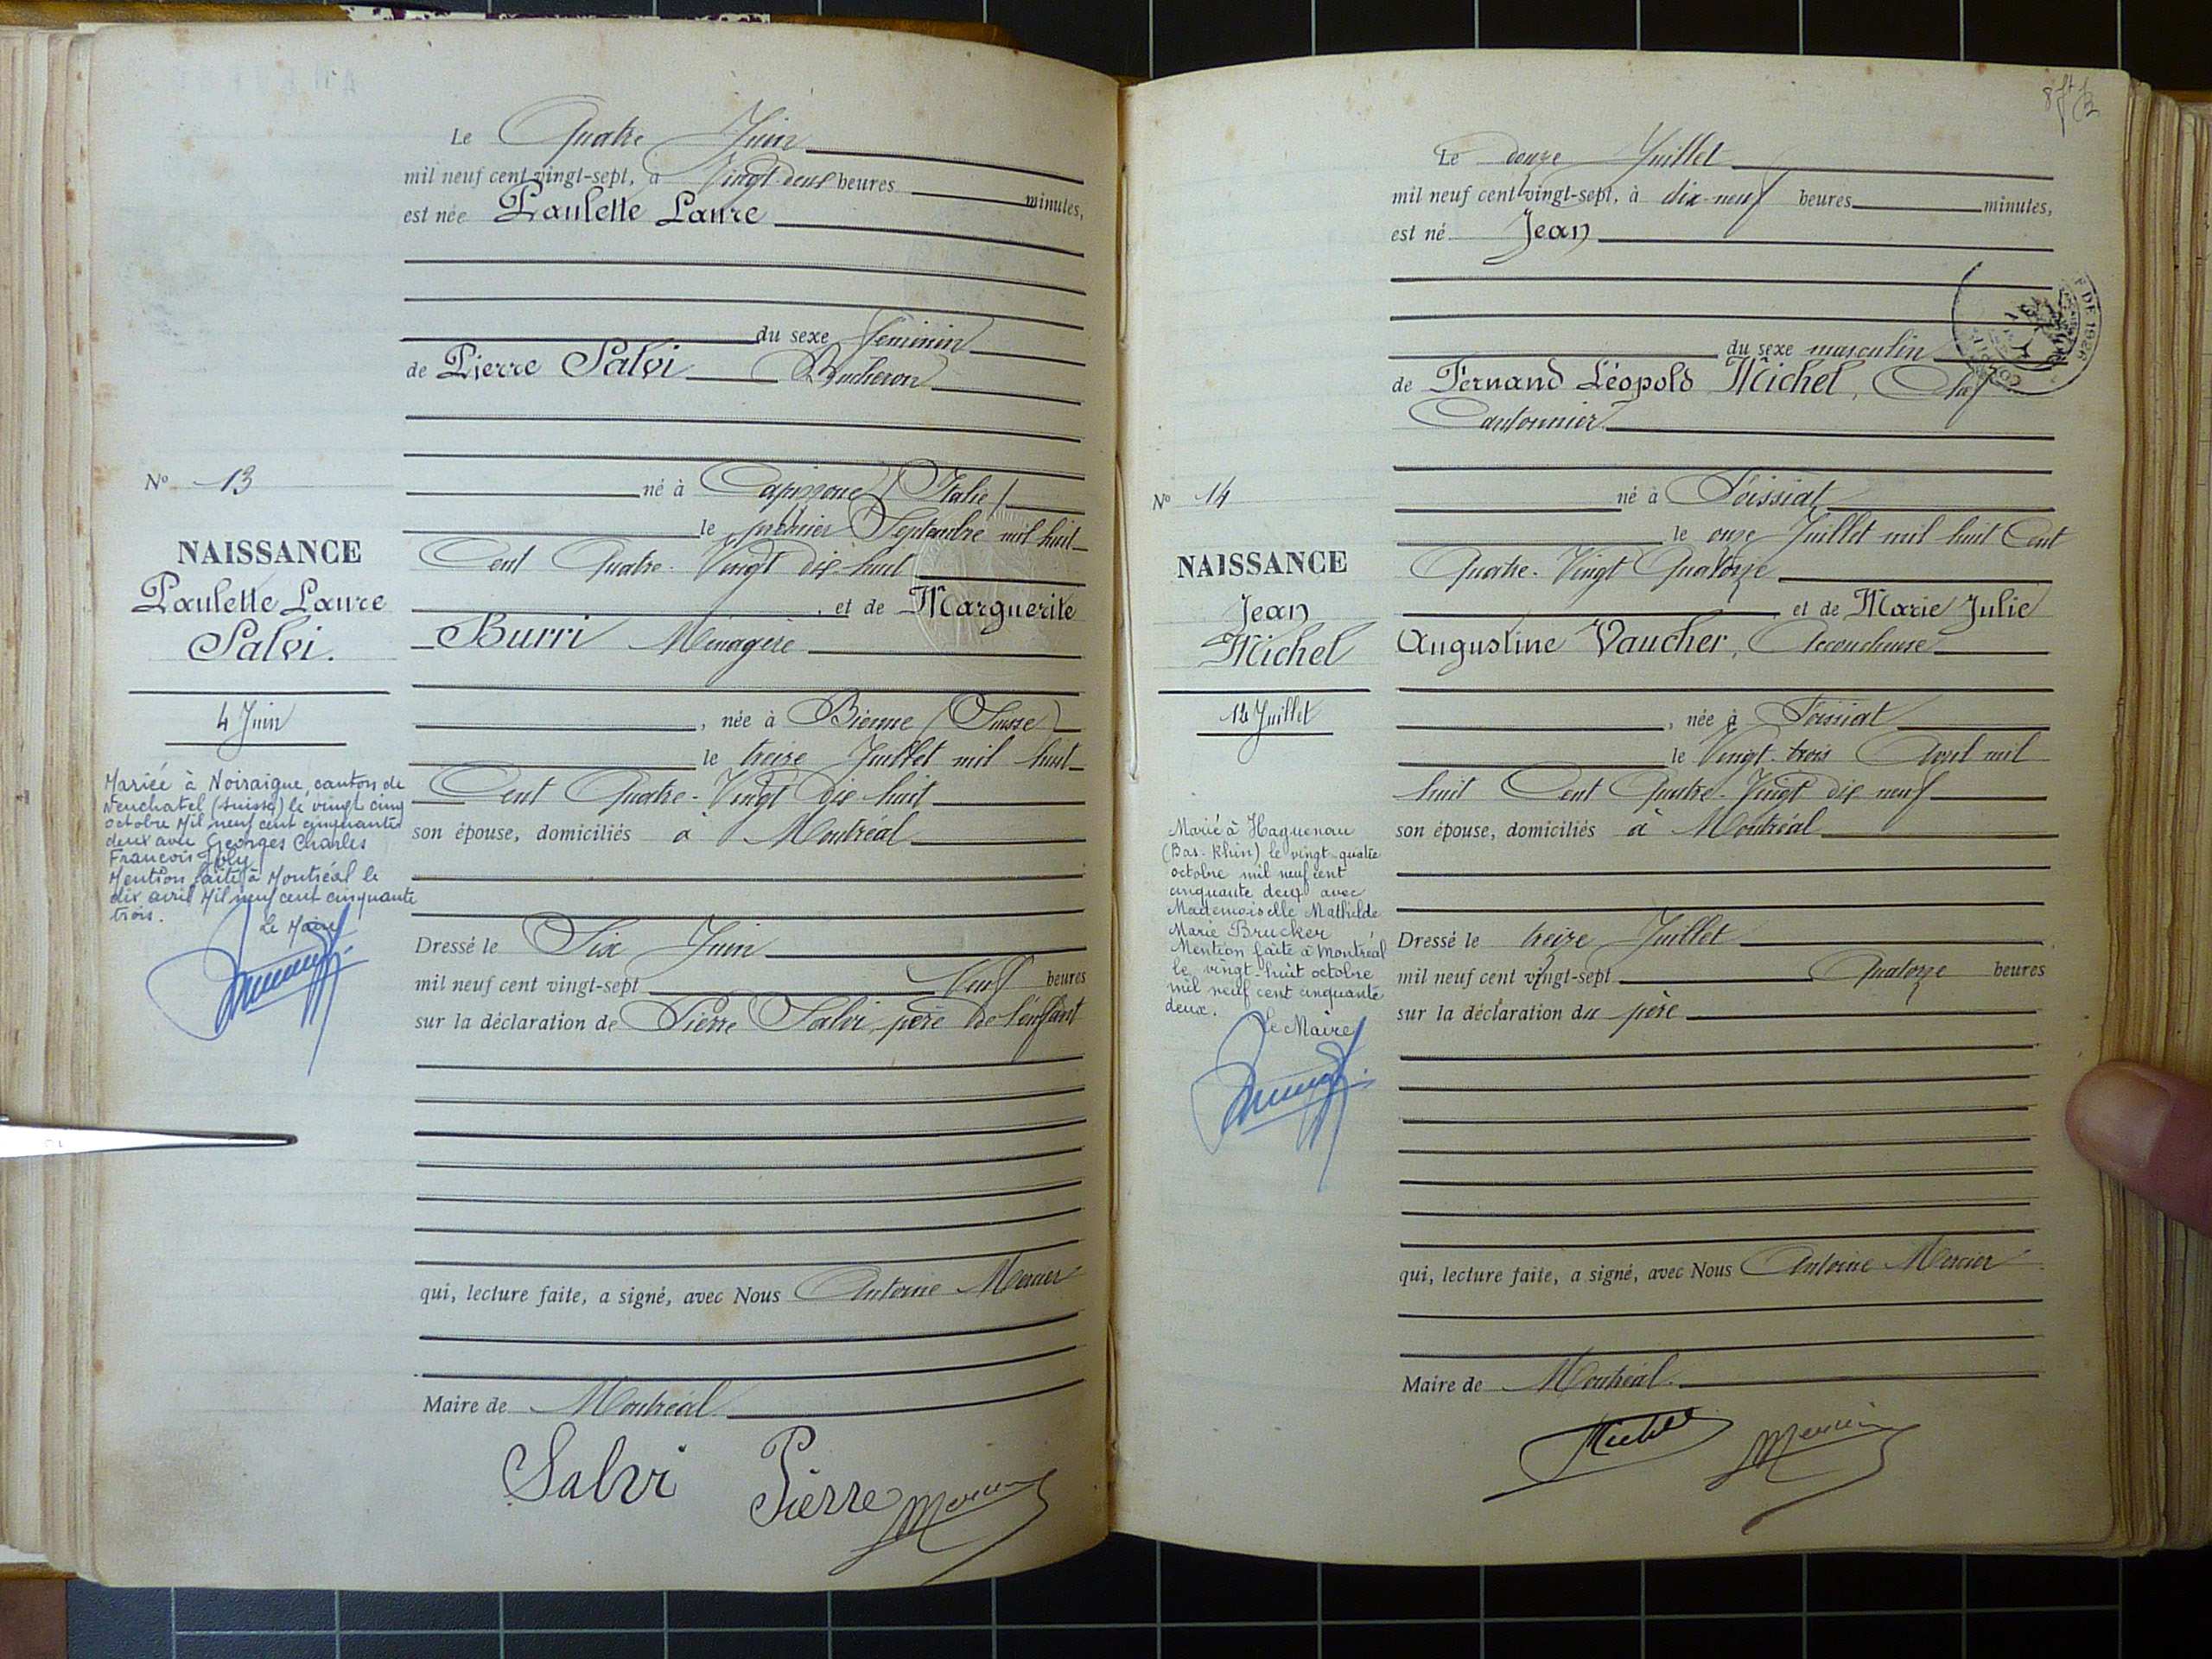 Le Quatre Juin
mil neuf cent vingt-sept, à Vingt-deux heures minutes,
est née Paulette Laure
du sexe féminin
de Pierre Salvi Bucheron
né à Capizzone (Italie)
le premier Septembre mil huit
Cent Quatre-Vingt dix-huit
, et de Marguerite
Burri Ménagère
, née à Bienne (Suisse)
le treize Juillet mil huit
Cent Quatre-Vingt dix huit
son épouse, domiciliés à Montréal
Dressé le Six Juin
mil neuf cent vingt-sept Neuf heures
sur la déclaration de Pierre Salvi père de l'enfant
qui, lecture faite, a signé, avec Nous Antoine Mercier
Maire de Montréal
Salvi Pierre Mercier
No 13
NAISSANCE
Paulette Laure
Salvi.
4 Juin
Mariée à Noiraigue, canton de
Neuchatel (suisse) le vingt cinq
octobre Mil neuf cent cinquante
deux avec Georges Charles
François Joly
Mention faite à Montréal le
dix avril Mil neuf cent cinquante
trois.
Le Maire
Le douze Juillet
mil neuf cent vingt-sept, à dix-neuf heures minutes,
est né Jean
du sexe masculin
de Fernand Léopold Michel, Chef
Cantonnier
né à Foissiat
le onze Juillet mil huit Cent
Quatre-Vingt Quatorze
et de Marie Julie
Augustine Vaucher, Accoucheuse
, née à Foissiat
le Vingt-trois Avril mil
huit Cent Quatre-Vingt dix neuf
son épouse, domiciliés à Montréal
Dressé le treize Juillet
mil neuf cent vingt-sept Quatorze heures
sur la déclaration du père
qui, lecture faite, a signé, avec Nous Antoine Mercier
Maire de Montréal
Michel Mercier
No 14
NAISSANCE
Jean
Michel
12 Juillet
Marié à Haguenau
(Bas-Rhin) le vingt-quatre
octobre mil neuf cent
cinquante deux avec
Mademoiselle Mathilde
Marie Brucker
Mention faite à Montréal
le vingt-huit octobre
mil neuf cent cinquante
deux.
Le Maire
DE 1926